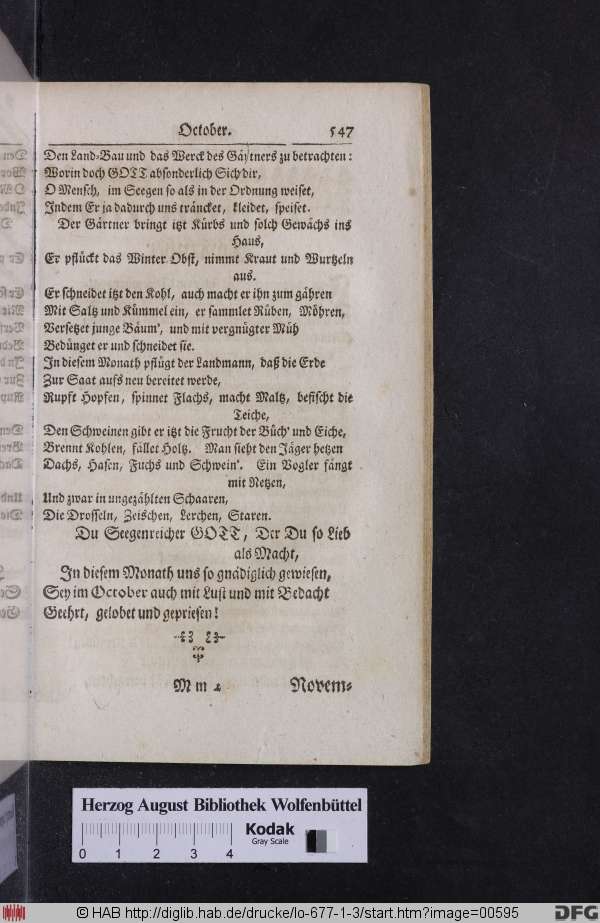 October. 547
Den Land-Bau und das Werck des Gärtners zu betrachten:
Worin doch GOTT absonderlich Sich dir,
O Mensch, im Seegen so als in der Ordnung weiset,
Indem Er ja dadurch uns träncket, kleidet, speiset.
Der Gärtner bringt itzt Kürbs und solch Gewächs ins
Haus,
Er pflückt das Winter Obst, nimmt Kraut und Wurtzeln
aus.
Er schneidet itzt den Kohl, auch macht er ihn zum gähren
Mit Saltz und Kümmel ein, er sammlet Rüben, Möhren,
Versetzet junge Bäum', und mit vergnügter Müh
Bedünget er und schneidet sie.
In diesem Monath pflügt der Landmann, daß die Erde
Zur Saat aufs neu bereitet werde,
Rupft Hopfen, spinnet Flachs, macht Maltz, befischt die
Teiche,
Den Schweinen gibt er itzt die Frucht der Büch' und Eiche,
Brennt Kohlen, fället Holtz. Man sieht den Jäger hetzen
Dachs, Hasen, Fuchs und Schwein'. Ein Vogler fängt
mit Netzen,
Und zwar in ungezählten Schaaren,
Die Drosseln, Zeischen, Lerchen, Staren.
Du Seegenreicher GOTT, Der Du so Lieb
als Macht,
In diesem Monath uns so gnädiglich gewiesen,
Sey im October auch mit Lust und mit Bedacht
Geehrt, gelobet und gepriesen!
M m 2 Novem-
Herzog August Bibliothek Wolfenbüttel
Kodak
Gray Scale
0 1 2 3 4
© HAB http://diglib.hab.de/drucke/lo-677-1-3/start.htm?image=00595
DFG